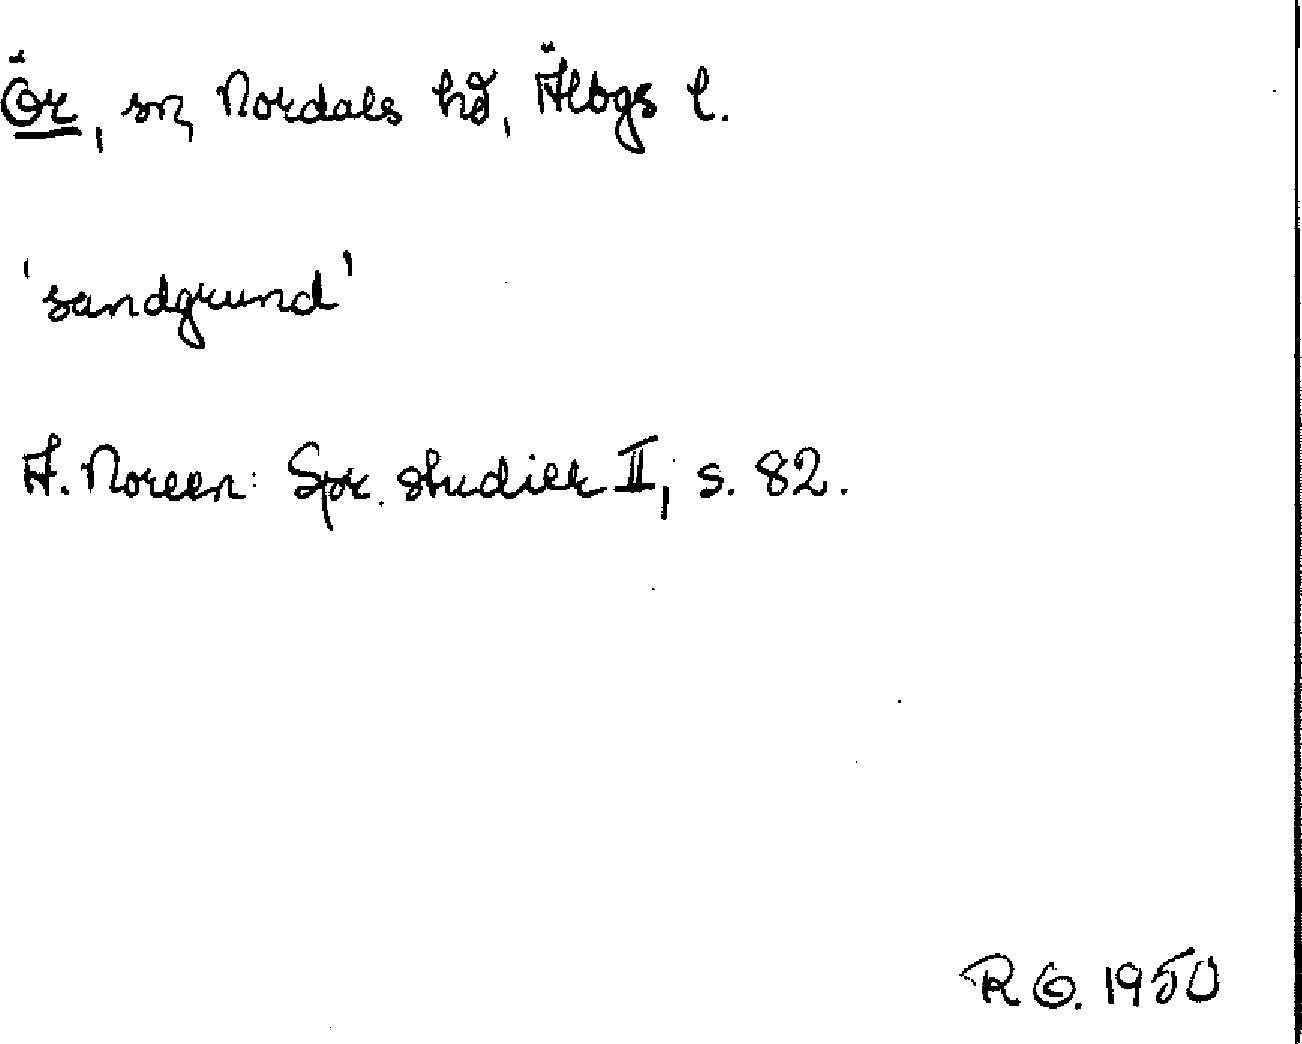 Ör, sn, Nordals hd, Älbgs l.
'sandgrund'
A. Noreen: Spr. studier II, s. 82.
R G. 1950